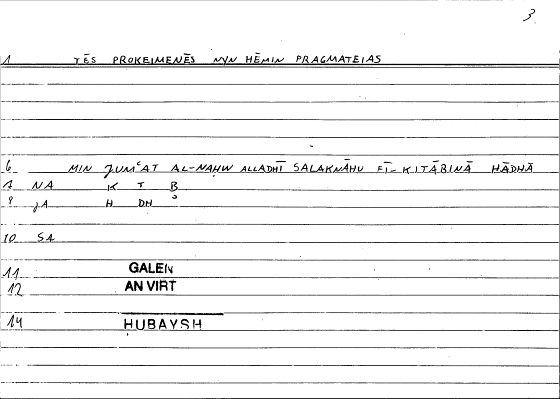 3
1 TĒS PROKEIMENĒS NYN HĒMIN PRAGMATEIAS
6 MIN JUMʿAT AL-NAḤW ALLADHĪ SALAKNĀHU FĪ- KITĀBINĀ HĀDHĀ
7 NA K T B
JA H DH
10 SA
11 GALEN
12 AN VIRT
14 HUBAYSH